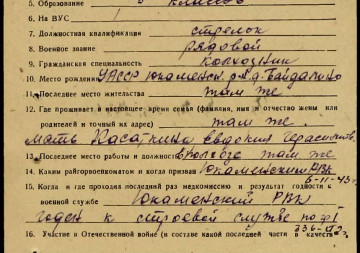 5. Образование 5 классов
6. На ВУС
7. Должностная квалификация стрелок
8. Военное звание рядовой
9. Гражданская специальность колхозник
10. Место рождения УАССР Юкаменск. р-н д. Байдалино
11. Последнее место жительства там же
12. Где проживает в настоящее время семья (фамилия, имя и отчество жены или
родителей и точный их адрес) там же.
мать Касаткина Евдокия Герасимовна
13. Последнее место работы и должность в колхозе там же
14. Каким райгорвоенкоматом и когда призван Юкаменский РВК
6-II-43 г.
15. Когда и где проходил последний раз медкомиссию и результат годности к
военной службе Юкаменский РВК
годен к строевой службе по гр I
16. Участие в Отечественной войне (в составе какой последней части в качестве